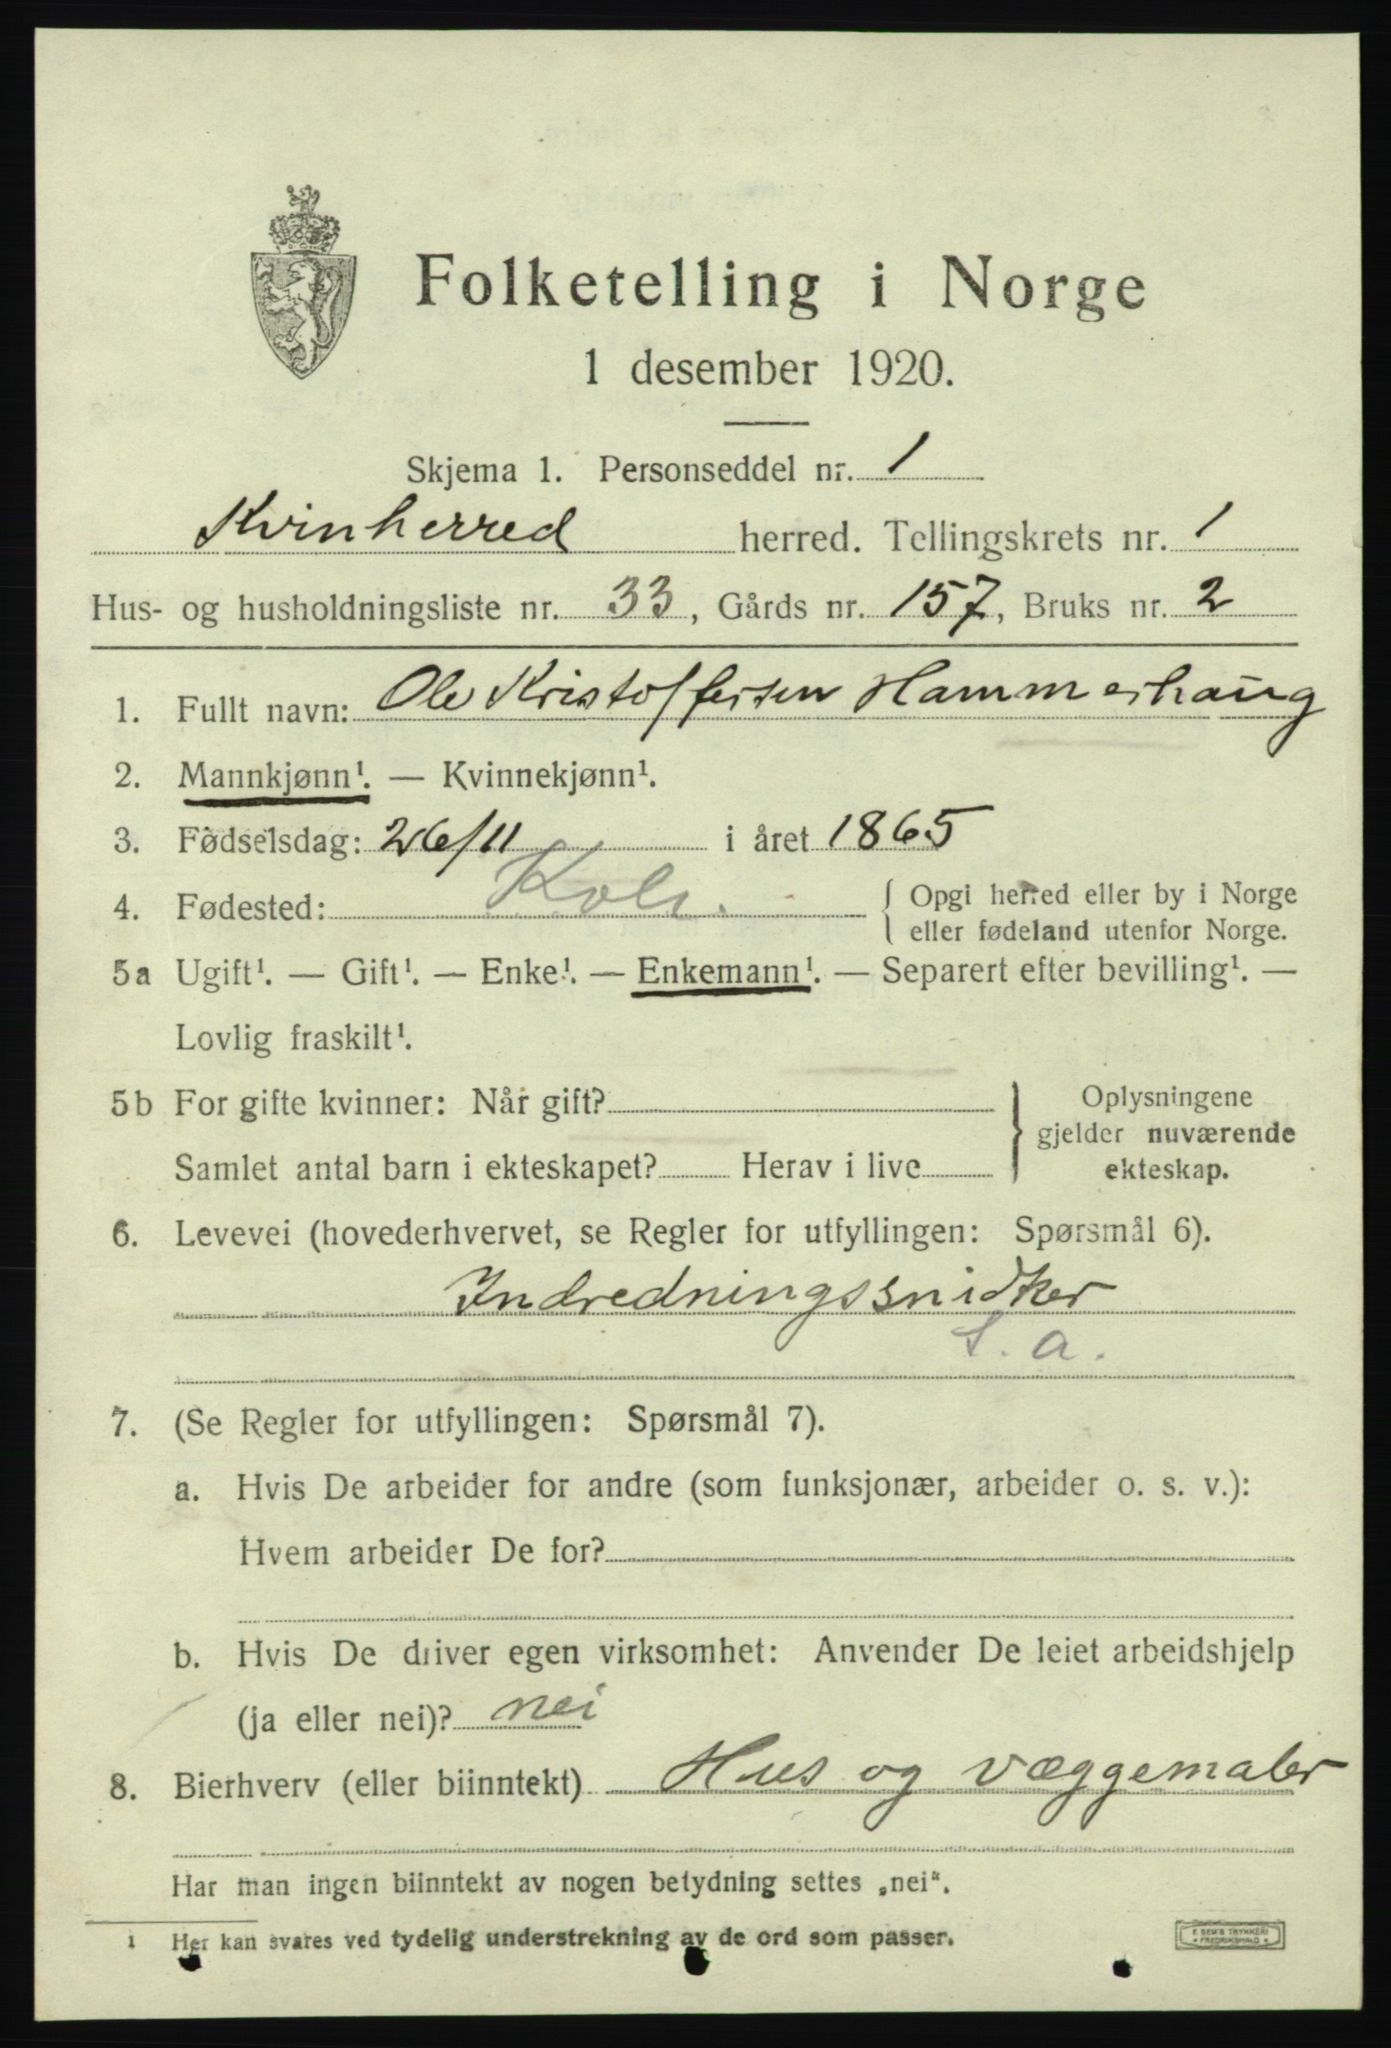 Folketelling i Norge
1 desember 1920.
Skjema 1. Personseddel nr. 1
Kvinherred herred. Tellingskrets nr. 1
Hus- og husholdningsliste nr. 33, Gårds nr. 157, Bruks nr. 2
1. Fullt navn: Ole Kristoffersen Hammerhaug
2. Mannkjønn¹. — Kvinnekjønn¹.
3. Fødselsdag: 26/11 i året 1865
4. Fødested: { Opgi herred eller by i Norge
eller fødeland utenfor Norge.
5a Ugift¹. — Gift¹. — Enke¹. — Enkemann¹. — Separert efter bevilling¹. —
Lovlig fraskilt¹.
5b For gifte kvinner: Når gift? } Oplysningene
gjelder nuværende
Samlet antal barn i ekteskapet? Herav i live ekteskap.
6. Levevei (hovederhvervet, se Regler for utfyllingen: Spørsmål 6).
Indredningssnidker
S. a.
7. (Se Regler for utfyllingen: Spørsmål 7).
a. Hvis De arbeider for andre (som funksjonær, arbeider o. s. v.):
Hvem arbeider De for?
b. Hvis De driver egen virksomhet: Anvender De leiet arbeidshjelp
(ja eller nei)? nei
8. Bierhverv (eller biinntekt) Hus og væggemaler
Har man ingen biinntekt av nogen betydning settes „nei“.
1 Her kan svares ved tydelig understrekning av de ord som passer.
F. SEM'S TRYKKERI
FREDRIKSHALD